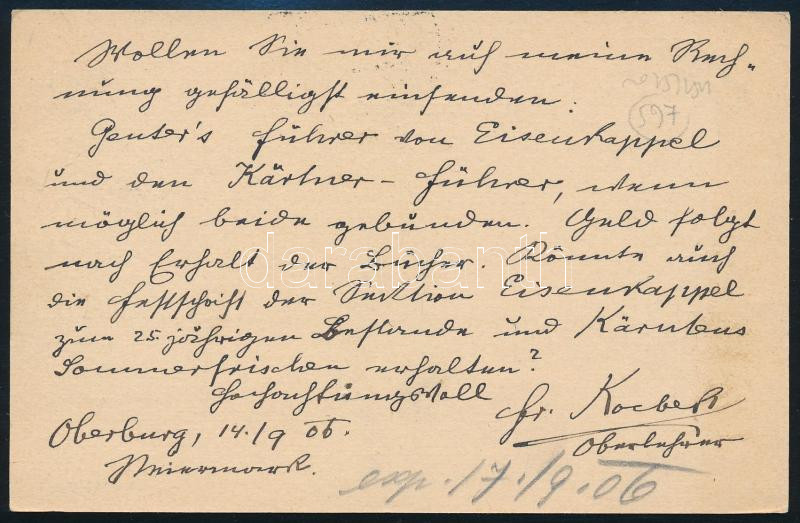 Wollen Sie mir auf meine Rech-
nung gefälligst einsenden:
Genter's Führer von Eisenkappel
und den Kärtner-Führer, wenn
möglich beide gebunden. Geld folgt
nach Erhalt der Bücher. Könnte auch
die Festschrift der Sektion Eisenkappel
zum 25. jährigen Bestande und Kärntens
Sommerfrischen erhalten?
Hochachtungsvoll
Fr. Kocbek
Oberlehrer
Oberburg, 14./9 06.
Steiermark.
exp. 17./9.06
597
darabanth